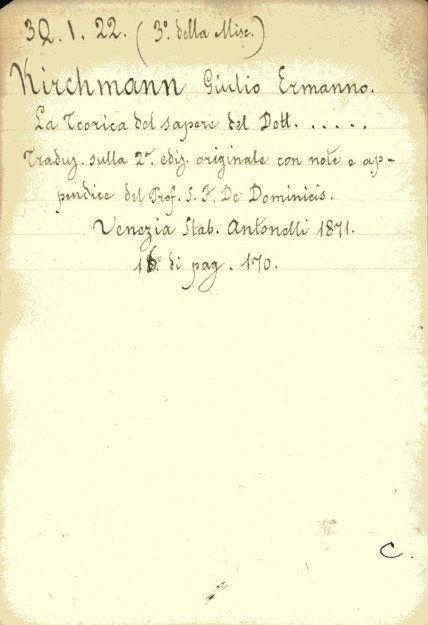 32. 1. 22. (3º. della Misc.)
Kirchmann Giulio Ermanno.
La Teorica del sapere del Dott. . . . . .
Traduz. sulla 2ª. ediz. originale con note e ap-
pendice del Prof. S. F. De Dominicis.
Venezia Stab. Antonelli 1871.
16.º di pag. 170.
C.